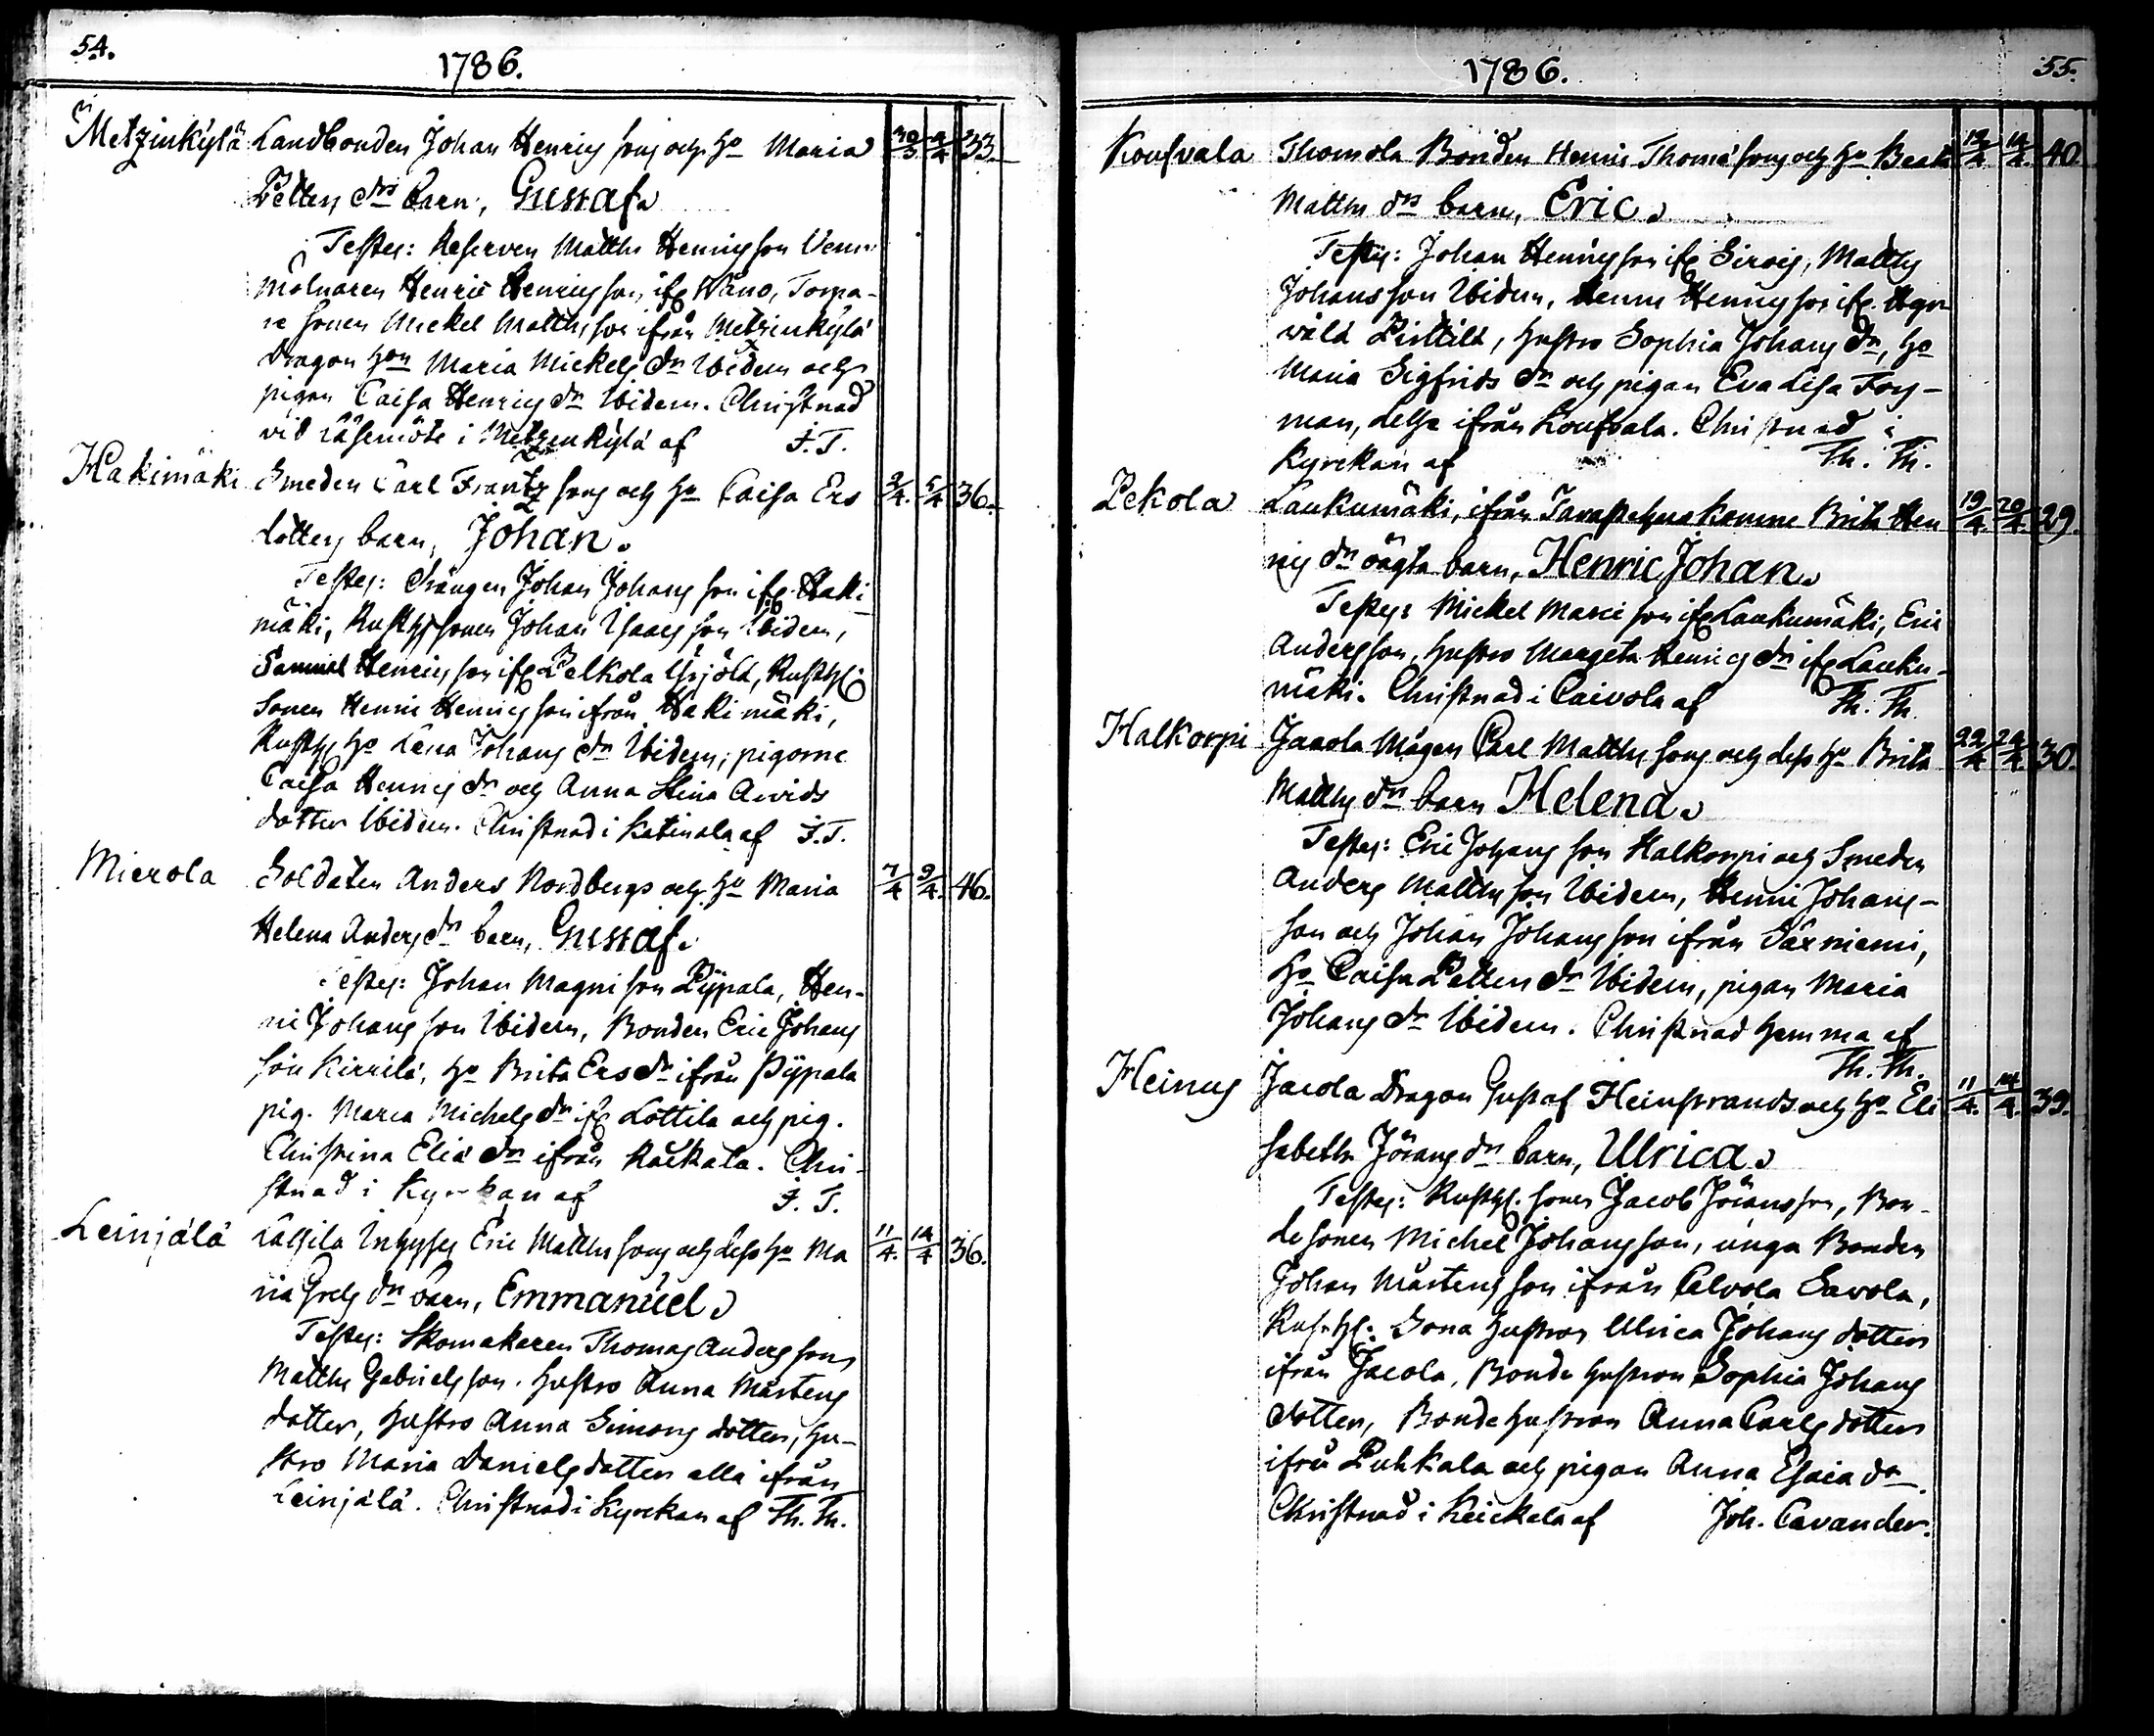 54.
1786.
Metzinkylä Landbonden Johan Henrics sons och ho Maria 30/3 4/4 33.
Petters drs barn, Gustaf.
Testes: Reserven Matths Henricsson
mölnaren Henric Henricsson ifr Wäno, Torpa-
re sonen Mickel Matthsson ifrån Metzinkylä
Dragon hun Maria Mickels dr Ibidem och
pigan Caisa Henrics dr Ibidem. Christnad
vid Läsemöte i Metzenkylä af J. T.
Hakimäki Smeden Carl Frantz sons och ho Caisa Ers 3/4. 5/4 36.
dotters barn, Johan.
Testes: Drängen Johan Johansson ifr. Haki-
mäki, Rusth. sonen Johan Isaacsson Ibidem,
Samuel Henricsson ifr Pelkola Yrjölä, Rusth.
Sonen Henric Henricsson ifrån Hakimäki,
Rusth. ho Lena Johans dr Ibidem, pigorne
Caisa Henrics dr och Anna Stina Arvids
dotter Ibidem. Christnad i Katinala af J. T.
Mierola Soldaten Anders Nordbergs och ho Maria 7/4 9/4. 46.
Helena Anders dr barn, Gustaf.
Testes: Johan Magnisson Pÿpala, Hen-
ric Johansson Ibidem, Bonden Eric Johans
son Kirrilä, ho Brita Ers dr ifrån Pÿpala
pig. Maria Michels dr ifr Lottila och pig.
Christina Eliæ dr ifrån Räckala. Chri-
stnad i Kyrckan af J. T.
Leinjälä Lassila Inhyses Eric Matths sons och dess ho Ma 11/4. 14/4 36.
ria Grels dr barn, Emmanuel.
Testes: Skomakaren Thomas Andersson,
Matths Gabrielsson. hustro Anna Mårtens
dotter, hustro Anna Simons dotter, hu-
stro Maria Danielsdotter alla ifrån
Leinjälä. Christnad i Kyrckan af Th. Th.
1786. 55.
Kousvala Thomola Bonden Henric Thomæ sons och ho Beata 12/4 14/4. 40.
Matths drs barn, Eric.
Testes: Johan Henricsson ifr Sirois, Matths
Johansson Ibidem, Henric Henricsson ifr.
Pirttilä, hustro Sophia Johans dr, ho
Maria Sigfrids dr och pigan Eva Lisa Fors-
man, desse ifrån Kousvala. Christnad i
Kyrckan af Th. Th.
Pekola Laukumäki, ifrån Tavastehus komne Brita Hen 19/4. 20/4. 29.
rics dr oägta barn, Henric Johan.
Testes: Mickel Marcisson ifr Laukumäki, Eric
Andersson, hustro Margeta Henrics dr ifr Lauku-
mäki. Christnad i Caivola af Th. Th.
Halkorpi Jaacola Mågen Carl Matths sons och dess ho Brita 22/4 24/4. 30.
Matths dr barn Helena.
Testes: Eric Johansson Halkorpi och Smeden
Anders Matthsson Ibidem, Henric Johans-
son och Johan Johansson ifrån Säxniemi,
ho Caisa Petters dr Ibidem, pigan Maria
Johans dr Ibidem. Christnad hemma af
Th. Th.
Heinus Jacola Dragon Gustaf Heinstrands och ho Eli 11/4. 14/4. 39.
sabeth Jörans dr barn, Ulrica.
Testes: Rusth. sonen Jacob Jöransson, Bon-
desonen Michel Johansson, unga Bonden
Johan Mårtensson ifrån Calvola Sawola,
Rusth. Sona hustron Ulrica Johans dotter
ifrån Jacola, Bonde hustron Sophia Johans
dotter, Bonde hustron Anna Carls dotter
ifrån Puhkala och pigan Anna Esaiæ dr.
Christnad i Keickala af Joh. Cavander.